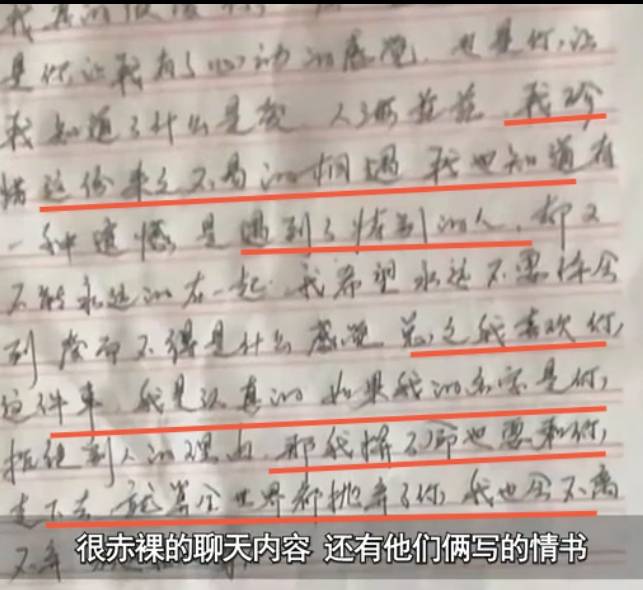 是你让我有了心动的感觉,也是你,让
我知道了什么是爱 人海茫茫,我珍
惜这份来之不易的相遇 我也知道有
一种遗憾是遇到了特别的人,却又
不能永远的在一起 我希望永远不要体会
到爱而不得是什么感觉 总之我喜欢你,
这件事,我是认真的 如果我的名字是你,
拒绝别人的理由,那我拼了命也要和你,
走下去 就算全世界都抛弃了你 我也会不离
不弃
很赤裸的聊天内容 还有他们俩写的情书